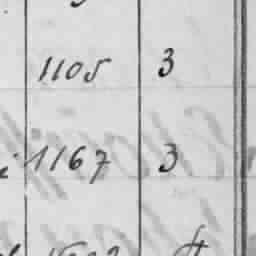 1105 3
1167 3